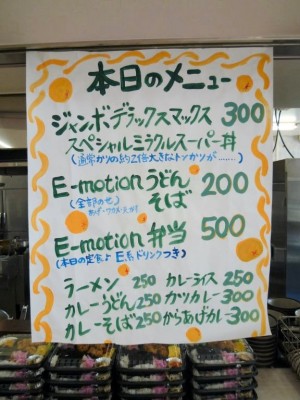 本日のメニュー
ジャンボデラックスマックス 300
スペシャルミラクルスーパー丼
(通常かつの約2倍大きなトンカツが.......)
E-motionうどん 200
(全部のせ) そば
E-motion弁当 500
(本日の定食♪ E系ドリンクつき)
ラーメン 250 カレーライス 250
カレーうどん 250 カツカレー 300
カレーそば 250 からあげカレー 300